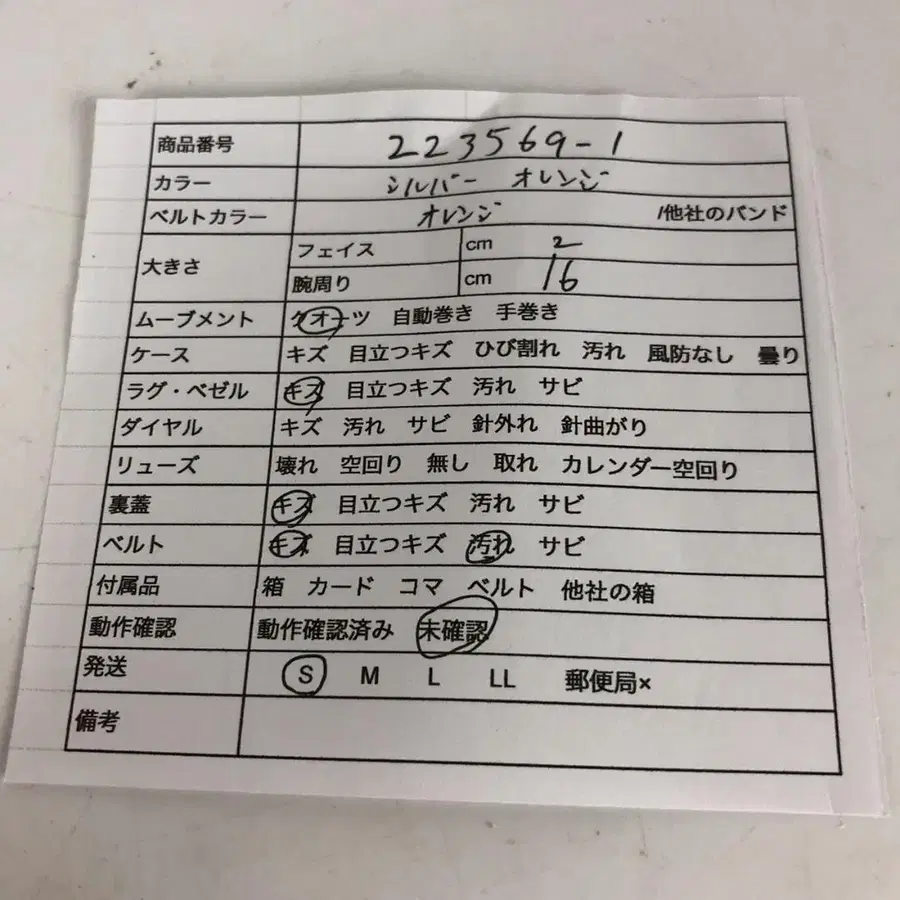 商品番号 223569-1
カラー シルバー オレンジ
ベルトカラー オレンジ /他社のバンド
大きさ フェイス cm 2
腕周り cm 16
ムーブメント クオーツ 自動巻き 手巻き
ケース キズ 目立つキズ ひび割れ 汚れ 風防なし 曇り
ラグ・ベゼル キズ 目立つキズ 汚れ サビ
ダイヤル キズ 汚れ サビ 針外れ 針曲がり
リューズ 壊れ 空回り 無し 取れ カレンダー空回り
裏蓋 キズ 目立つキズ 汚れ サビ
ベルト キズ 目立つキズ 汚れ サビ
付属品 箱 カード コマ ベルト 他社の箱
動作確認 動作確認済み 未確認
発送 S M L LL 郵便局×
備考